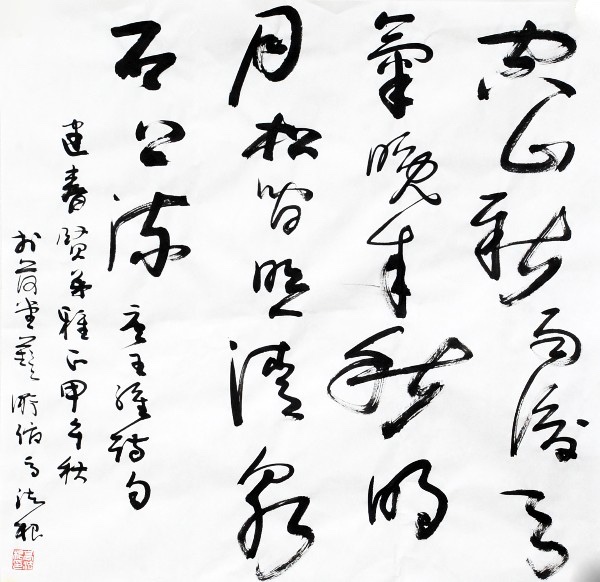 空山新雨後天
氣晚来秋明
月松間照清泉
石上流 唐王維詩句
建春賢弟雅正甲午秋
於荷堂